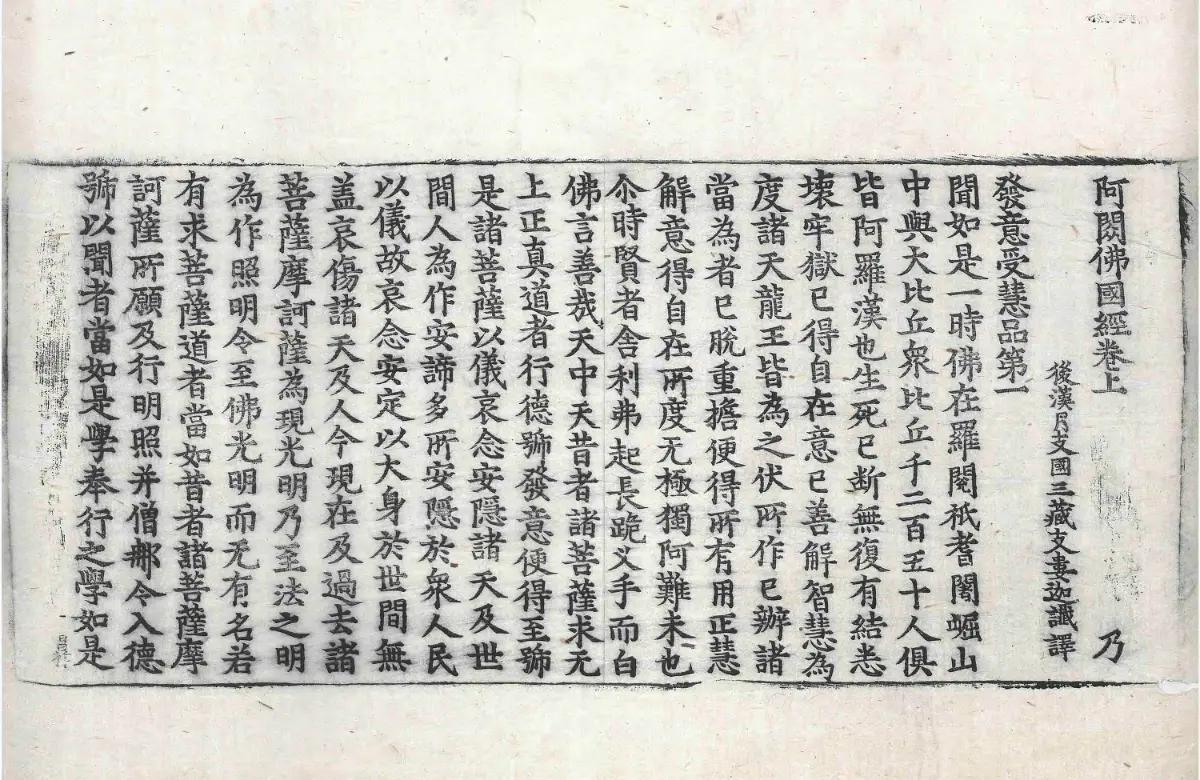 阿閦佛國經卷上 乃
後漢月支國三藏支婁迦讖譯
發意受慧品第一
聞如是一時佛在羅閱祇耆闍崛山
中與大比丘衆比丘千二百五十人俱
皆阿羅漢也生死已断無復有結悉
壞牢獄已得自在意已善解智慧為
度諸天龍王皆為之伏所作已辦諸
當為者已脫重擔便得所有用正慧
解意得自在所度无極獨阿難未也
尒時賢者舍利弗起長跪义手而白
佛言善哉天中天昔者諸菩薩求无
上正真道者行德號發意便得至號
是諸菩薩以儀哀念安隱諸天及世
間人為作安諦多所安隱於衆人民
以儀故哀念安定以大身於世間無
盖哀傷諸天及人今現在及過去諸
菩薩摩訶薩為現光明乃至法之明
為作照明令至佛光明而无有名若
有求菩薩道者當如昔者諸菩薩摩
訶薩所願及行明照并僧那令入德
號以聞者當如是學奉行之學如是